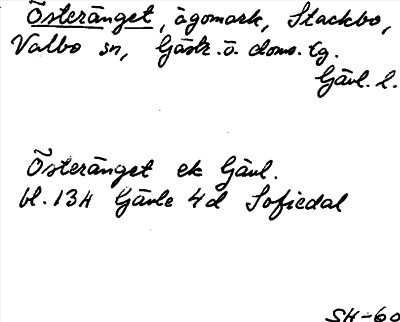 Österänget, ägomark, Stackbo,
Valbo sn, Gästr. ö. doms. tg.
Gävl. l.
Österänget ek Gävl.
bl. 13H Gävle 4d Sofiedal
SH-60